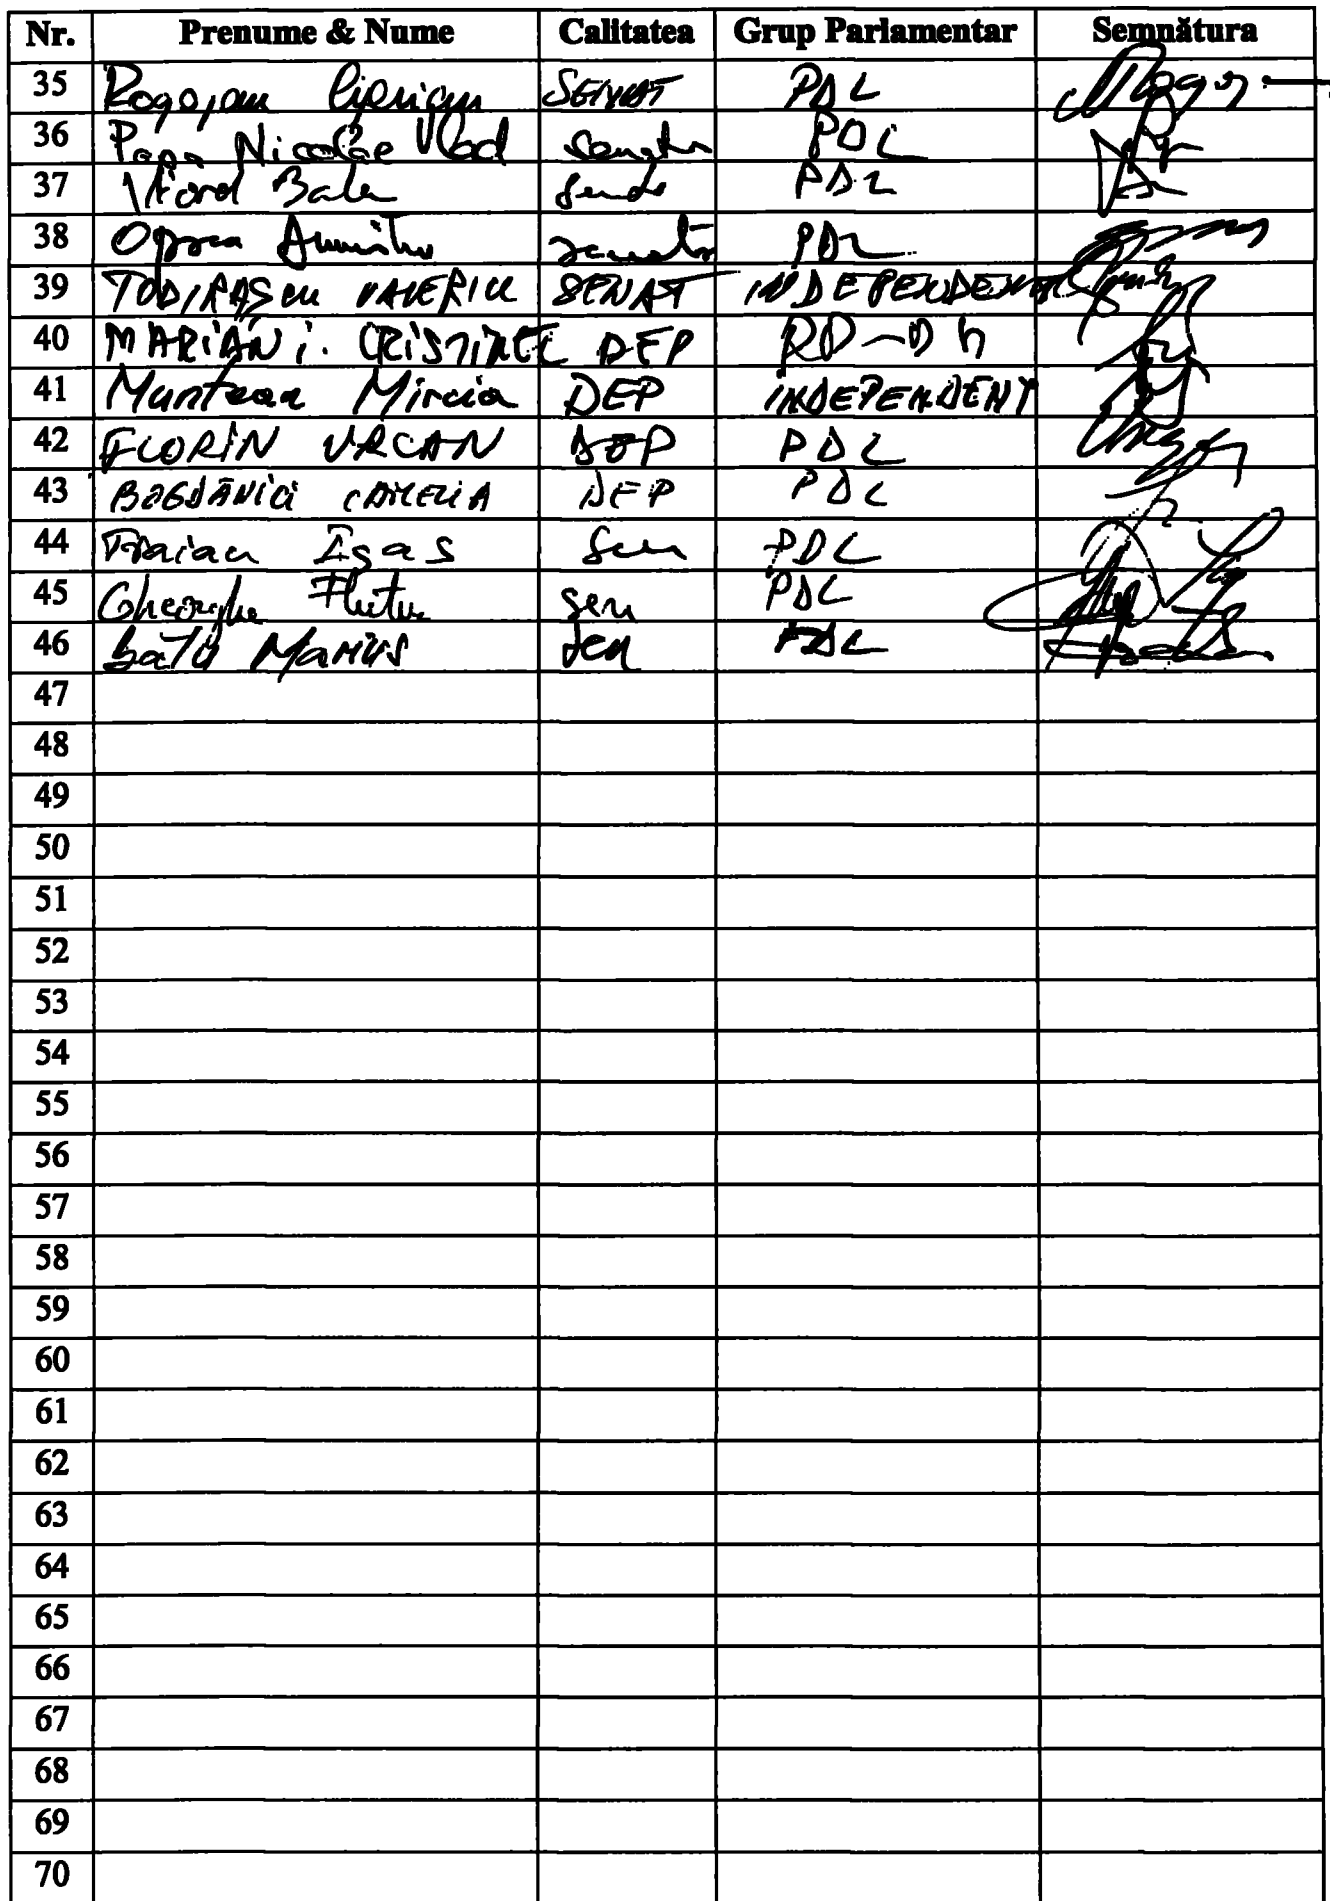 Nr. Prenume & Nume Calitatea Grup Parlamentar Semnătura
35 Rogojan Ciprian SENAT PDL
36 Popa Nicolae Vlad senator PDL
37 PDL
38 Oprea Dumitru senator PDL
39 TODIRAȘCU VALERIU SENAT INDEPENDENT
40 MARIAN i. CRISTINEL DEP
41 Muntean Mircia DEP INDEPENDENT
42 FLORIN URCAN DEP PDL
43 BOGDĂNICI CAMELIA DEP PDL
44 Traian Igas Sen PDL
45 Gheorghe Flutur sen PDL
46 MARIUS sen PDL
47
48
49
50
51
52
53
54
55
56
57
58
59
60
61
62
63
64
65
66
67
68
69
70